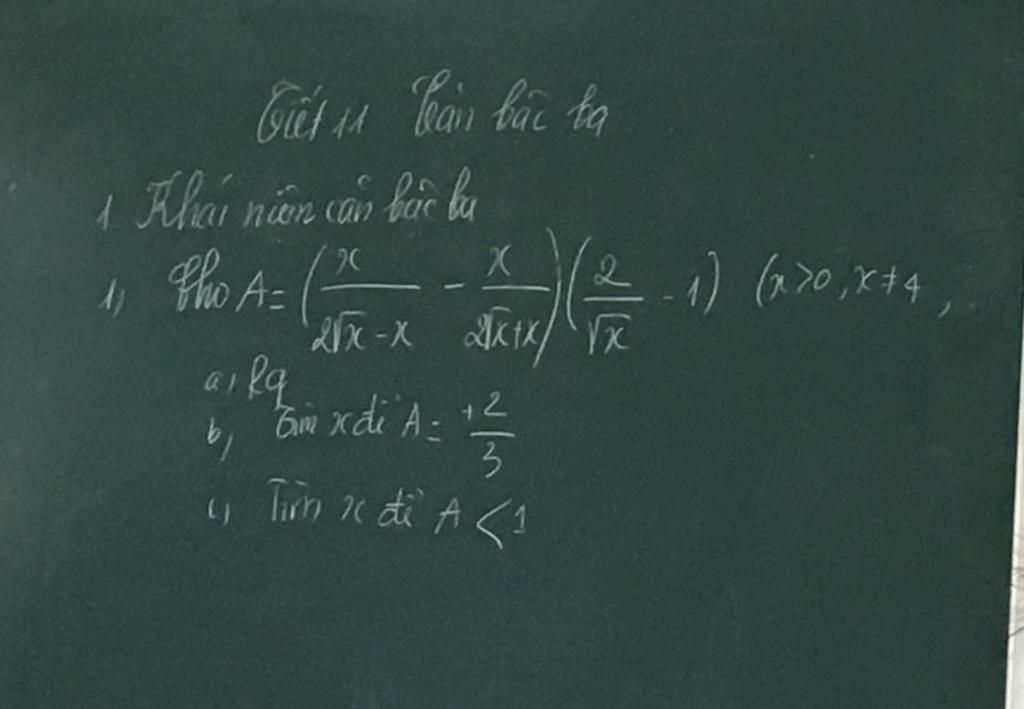 Tiết 11 Căn bậc ba
1 Khái niệm căn bậc ba
1, Cho A = (x/(2√x - x) - x/(2√x + x))(2/√x - 1) (x>0, x≠4,
a, Rg
b, Tìm x để A = +2/3
c, Tìm x để A < 1